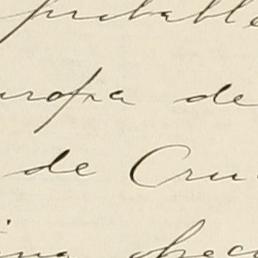 probable
uropa de
de Cru